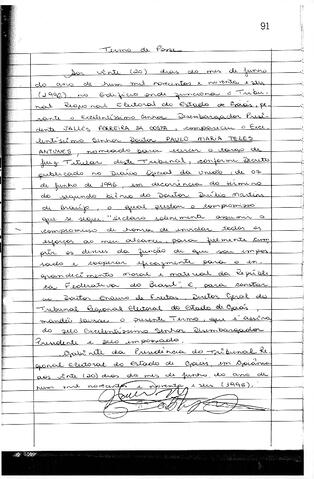 91
Termo de Posse
Aos vinte (20) dias do mes de junho
do ano de hum mil novecentos e noventa e seis
(1996), no Edifício onde funciona o Tribu-
nal Regional Eleitoral do Estado de Goiás, pe-
rante o Excelentíssimo Senhor Desembargador Presi-
dente JALLES FERREIRA DA COSTA, compareceu o Exce-
lentíssimo Senhor Doutor PAULO MARIA TELES
ANTUNES, nomeado para exercer o cargo de
Juiz Titular deste Tribunal, conforme Decreto
publicado no Diário Oficial da União, de 03
de junho de 1996, em decorrência do término
do segundo biênio do Doutor
de Araújo, o qual prestou o compromisso
que se segue: "Declaro solenemente assumir o
compromisso de honra de envidar todos os
esforços ao meu alcance para fielmente cum-
prir os deveres da função de que sou impos-
sado e cooperar eficazmente para o en-
grandecimento moral e material da Repúbli-
ca Federativa do Brasil". E, para constar,
eu Doutor de Freitas, Diretor Geral do
Tribunal Regional Eleitoral do Estado de Goiás
mandei lavrar o presente Termo que é assina-
do pelo Excelentíssimo Senhor Desembargador
Presidente e pelo impossado.
Gabinete da Presidência do Tribunal Re-
gional Eleitoral do Estado de Goiás, em Goiânia,
aos vinte (20) dias do mes de junho do ano de
hum mil novecentos e noventa e seis (1996).